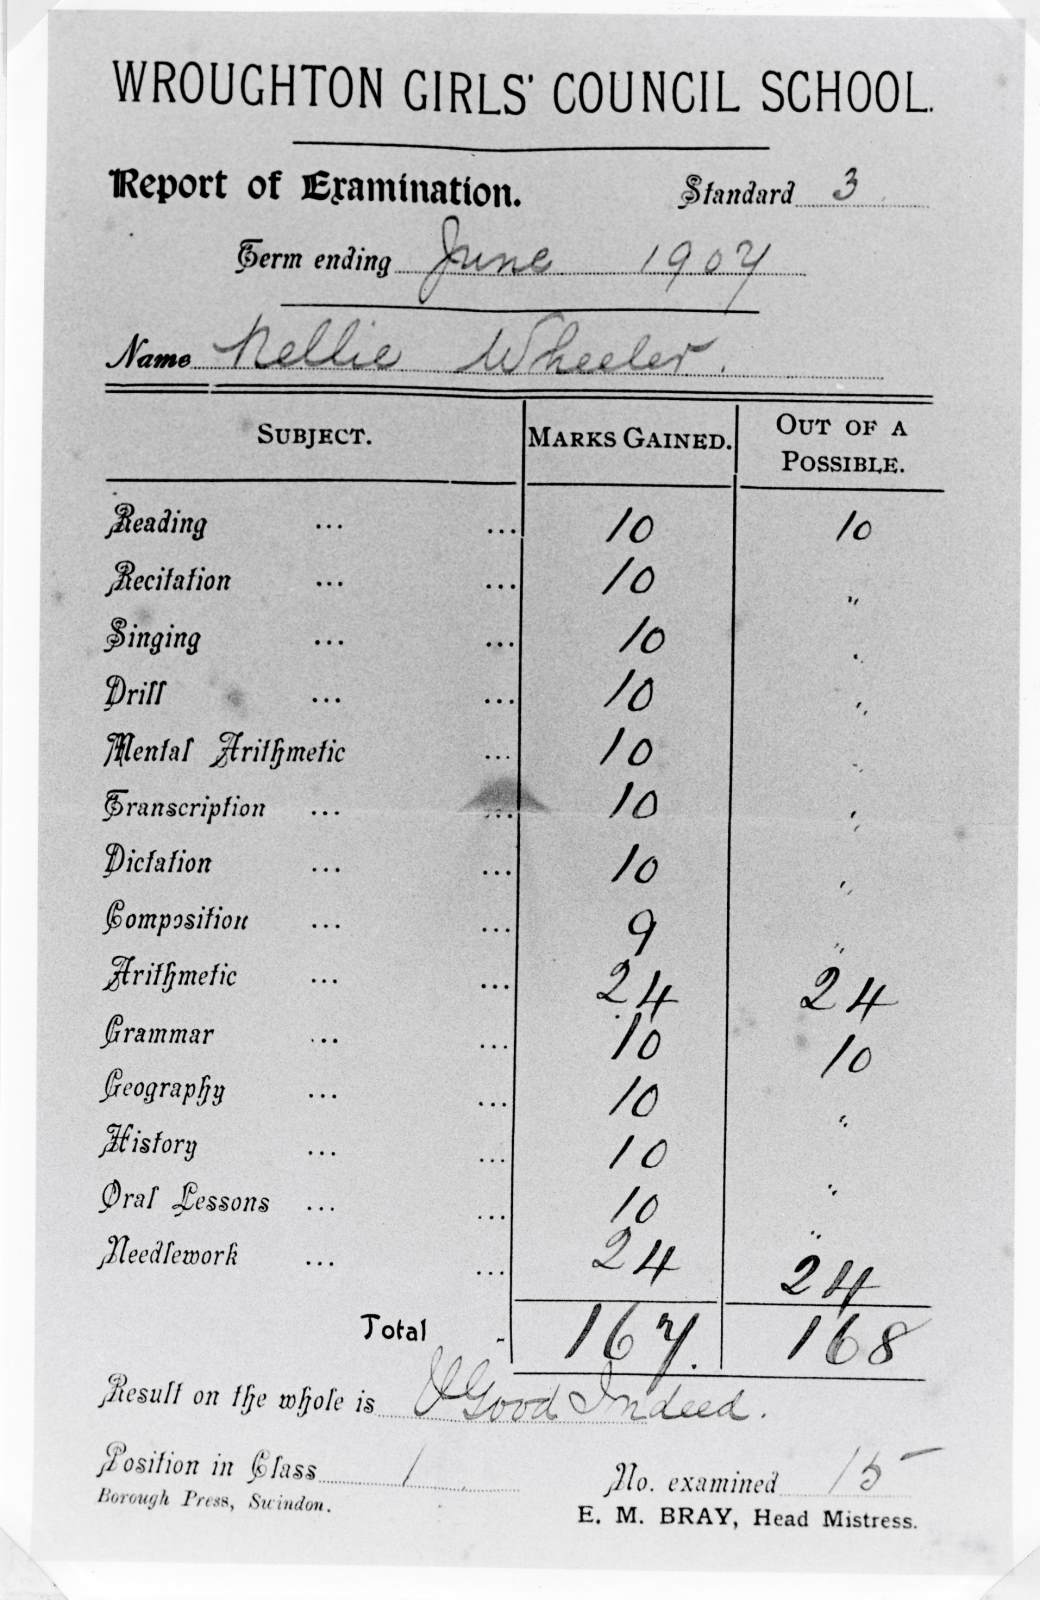 WROUGHTON GIRLS' COUNCIL SCHOOL.
Report of Examination. Standard 3
Term ending June 1907
Name Nellie Wheeler.
SUBJECT. MARKS GAINED. OUT OF A POSSIBLE.
Reading ... ... 10 10
Recitation ... ... 10 "
Singing ... ... 10 "
Drill ... ... 10 "
Mental Arithmetic ... 10 "
Transcription ... ... 10 "
Dictation ... ... 10 "
Composition ... ... 9 "
Arithmetic ... ... 24 24
Grammar ... ... 10 10
Geography ... ... 10 "
History ... ... 10 "
Oral Lessons ... ... 10 "
Needlework ... ... 24 24
Total - 167. 168
Result on the whole is V Good Indeed.
Position in Class 1 No. examined 15
Borough Press, Swindon. E. M. BRAY, Head Mistress.